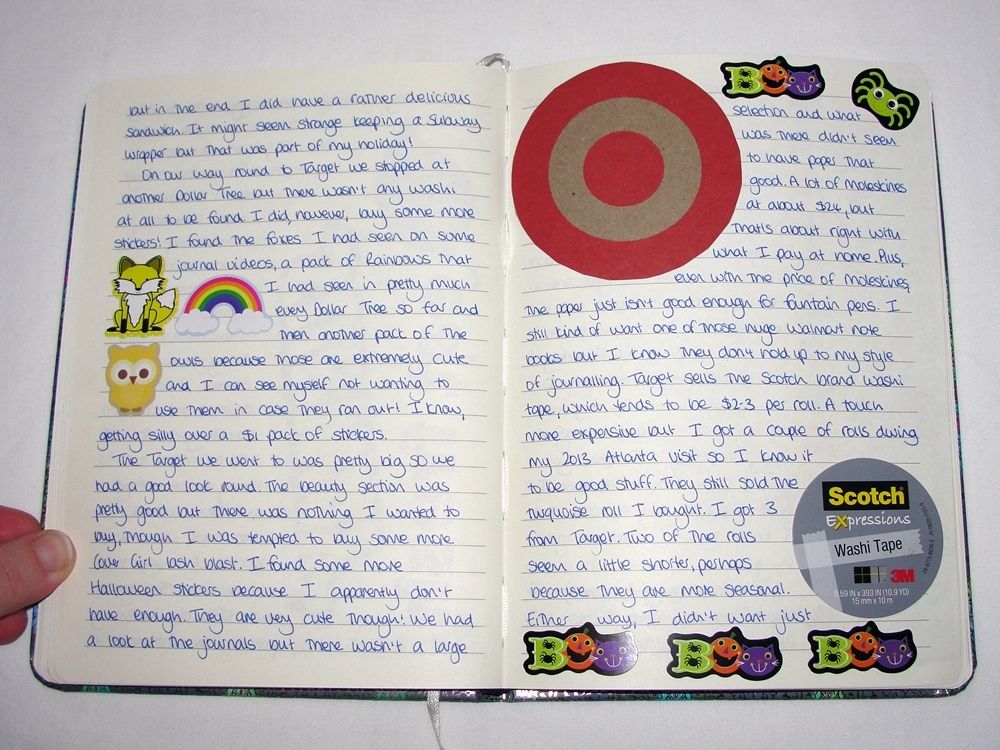 but in the end I did have a rather delicious
sandwich. It might seem strange keeping a Subway
wrapper but that was part of my holiday!
On our way round to Target we stopped at
another Dollar Tree but there wasn't any washi
at all to be found. I did, however, buy some more
stickers! I found the foxes I had seen on some
journal videos, a pack of Rainbows that
I had seen in pretty much
every Dollar Tree so far and
then another pack of the
owls because those are extremely cute
and I can see myself not wanting to
use them in case they ran out! I know,
getting silly over a $1 pack of stickers.
The Target we went to was pretty big so we
had a good look round. The beauty section was
pretty good but there was nothing I wanted to
buy, though I was tempted to buy some more
Cover Girl lash blast. I found some more
Halloween stickers because I apparently don't
have enough. They are very cute though! We had
a look at the journals but there wasn't a large
BOO
selection and what
was there didn't seem
to have paper that
good. A lot of moleskines
at about $24, but
that's about right with
what I pay at home. Plus,
even with the price of moleskines,
the paper just isn't good enough for fountain pens. I
still kind of want one of those huge Walmart note
books but I know they don't hold up to my style
of journalling. Target sells the Scotch brand washi
tape, which tends to be $2-3 per roll. A touch
more expensive but I got a couple of rolls during
my 2013 Atlanta visit so I know it
to be good stuff. They still sold the
turquoise roll I bought. I got 3
from Target. Two of the rolls
seem a little shorter, perhaps
because they are more seasonal.
Either way, I didn't want just
Scotch
Expressions
Washi Tape
3M
.59 IN x 393 IN (10.9 YD)
15 mm x 10 m
BOO
BOO
BOO